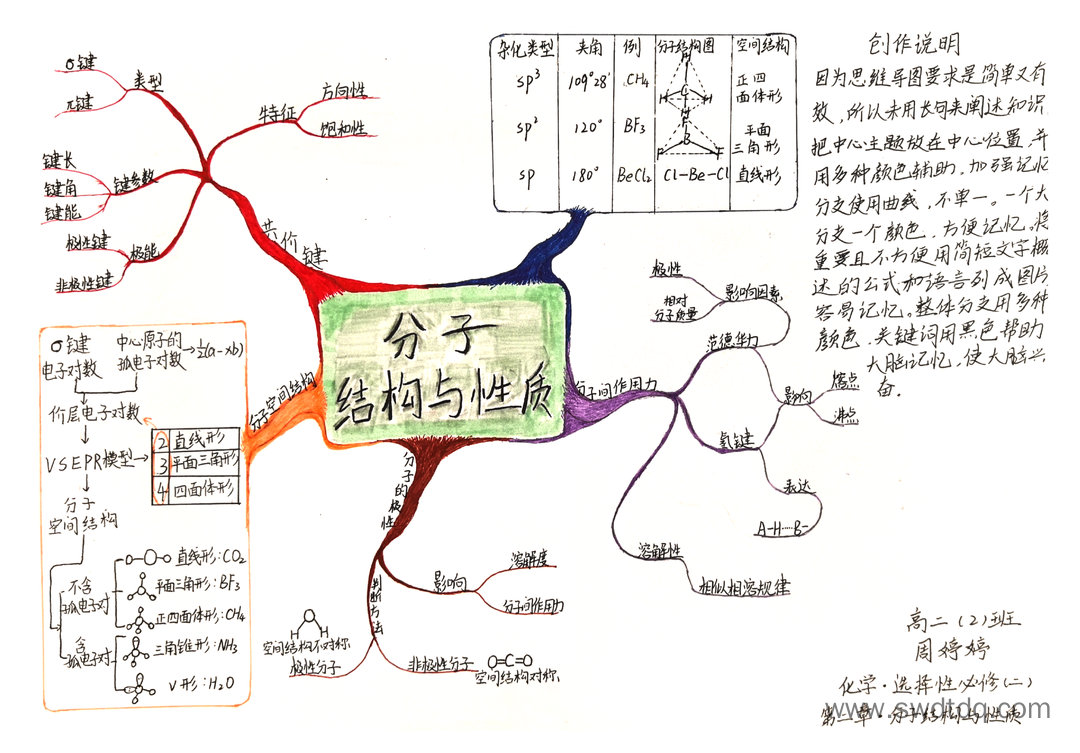 分子
结构与性质
共价键
类型
σ键
π键
特征
方向性
饱和性
键参数
键长
键角
键能
极能
极性键
非极性键
杂化类型 夹角 例 分子结构图 空间结构
sp³ 109°28′ CH₄ H C H H H 正四
面体形
sp² 120° BF₃ F B F F 平面
三角形
sp 180° BeCl₂ Cl-Be-Cl 直线形
创作说明
因为思维导图要求是简单又有
效,所以未用长句来阐述知识
把中心主题放在中心位置,并
用多种颜色辅助,加强记忆
分支使用曲线,不单一。一个大
分支一个颜色,方便记忆。将
重要且不方便用简短文字概
述的公式和语言列成图片
容易记忆。整体分支用多种
颜色,关键词用黑色帮助
大脑记忆,使大脑兴
奋。
分子间作用力
范德华力
影响因素
极性
相对
分子质量
影响
熔点
沸点
氢键
表达
A-H····B-
溶解性
相似相溶规律
分子的极性
影响
溶解度
分子间作用力
判断方法
H O H
空间结构不对称
极性分子
非极性分子
O=C=O
空间结构对称
分子空间结构
σ键
电子对数
中心原子的
孤电子对数
→½(a-xb)
价层电子对数
VSEPR模型
2 直线形
3 平面三角形
4 四面体形
分子
空间结构
不含
孤电子对
直线形:CO₂
平面三角形:BF₃
正四面体形:CH₄
含
孤电子对
三角锥形:NH₃
V形:H₂O
高二(2)班
周婷婷
化学·选择性必修(二)
第二章·分子结构与性质
www.swdtdq.com